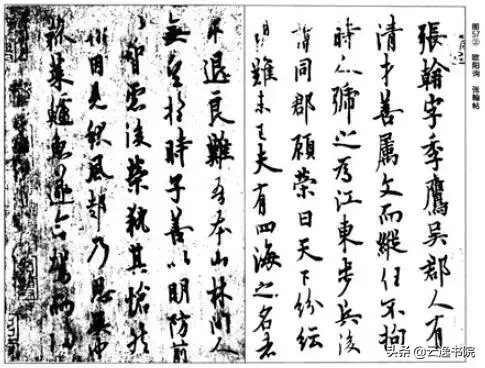 图57② 欧阳询 张翰帖
張翰字季鷹吳郡人有
清才善屬文而縱任不拘
時人號之為江東步兵後
謂同郡顧榮曰天下紛紜
禍難未已夫有四海之名者
求退良難吾本山林間人
無望於時子善以明防前
以智慮後榮執其愴然
翰因見秋風起乃思吳中
菰菜鱸魚遂命駕而歸
头条 @云逸书院